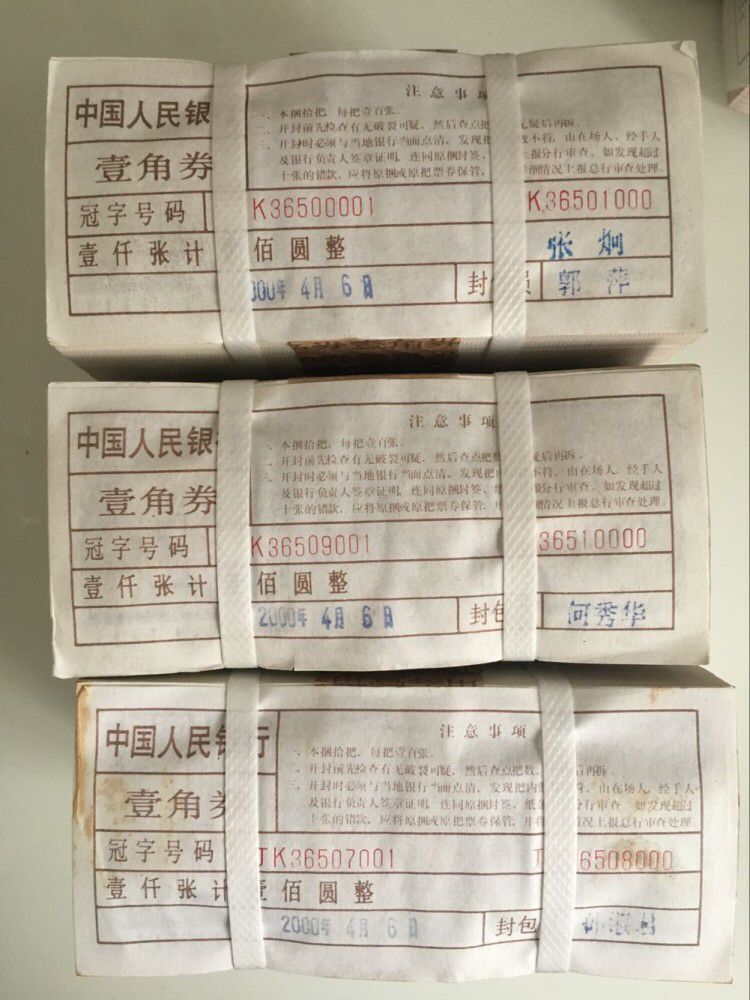 中国人民银
壹角券
注意事项
一、本捆拾把，每把壹百张。
二、开封前先检查有无破裂可疑，然后查点把 无疑后再拆。
三、开封时必须与当地银行当面点清，发现把 不符，由在场人、经手人
及银行负责人签章证明，连同原捆封签、 上报分行审查。如发现超过
十张的错款，应将原捆或原把票券保管， 详细情况上报总行审查处理。
冠字号码 K36500001 K36501000
壹仟张计 佰圆整 张炯
000年 4月 6日 封 员 郭萍
中国人民银
壹角券
注意事项
一、本捆拾把，每把壹百张。
二、开封前先检查有无破裂可疑，然后查点把数 疑后再拆。
三、开封时必须与当地银行当面点清，发现把 不符，由在场人、经手人
及银行负责人签章证明，连同原捆封签、纸 报分行审查。如发现超过
十张的错款，应将原捆或原把票券保管，并 情况上报总行审查处理。
冠字号码 K36509001 36510000
壹仟张计 佰圆整
2000年 4月 6日 封包 何秀华
中国人民银行
壹角券
注意事项
一、本捆拾把，每把壹百张。
二、开封前先检查有无破裂可疑，然后查点把数， 后再拆
三、开封时必须与当地银行当面点清，发现把内 符，由在场人、经手人
及银行负责人签章证明，连同原捆封签、纸 分行审查。如发现超过
十张的错款，应将原捆或原把票券保管，并将 情况上报总行审查处理。
冠字号码 JK36507001 J 6508000
壹仟张计 壹佰圆整
2000年 4月 6日 封包